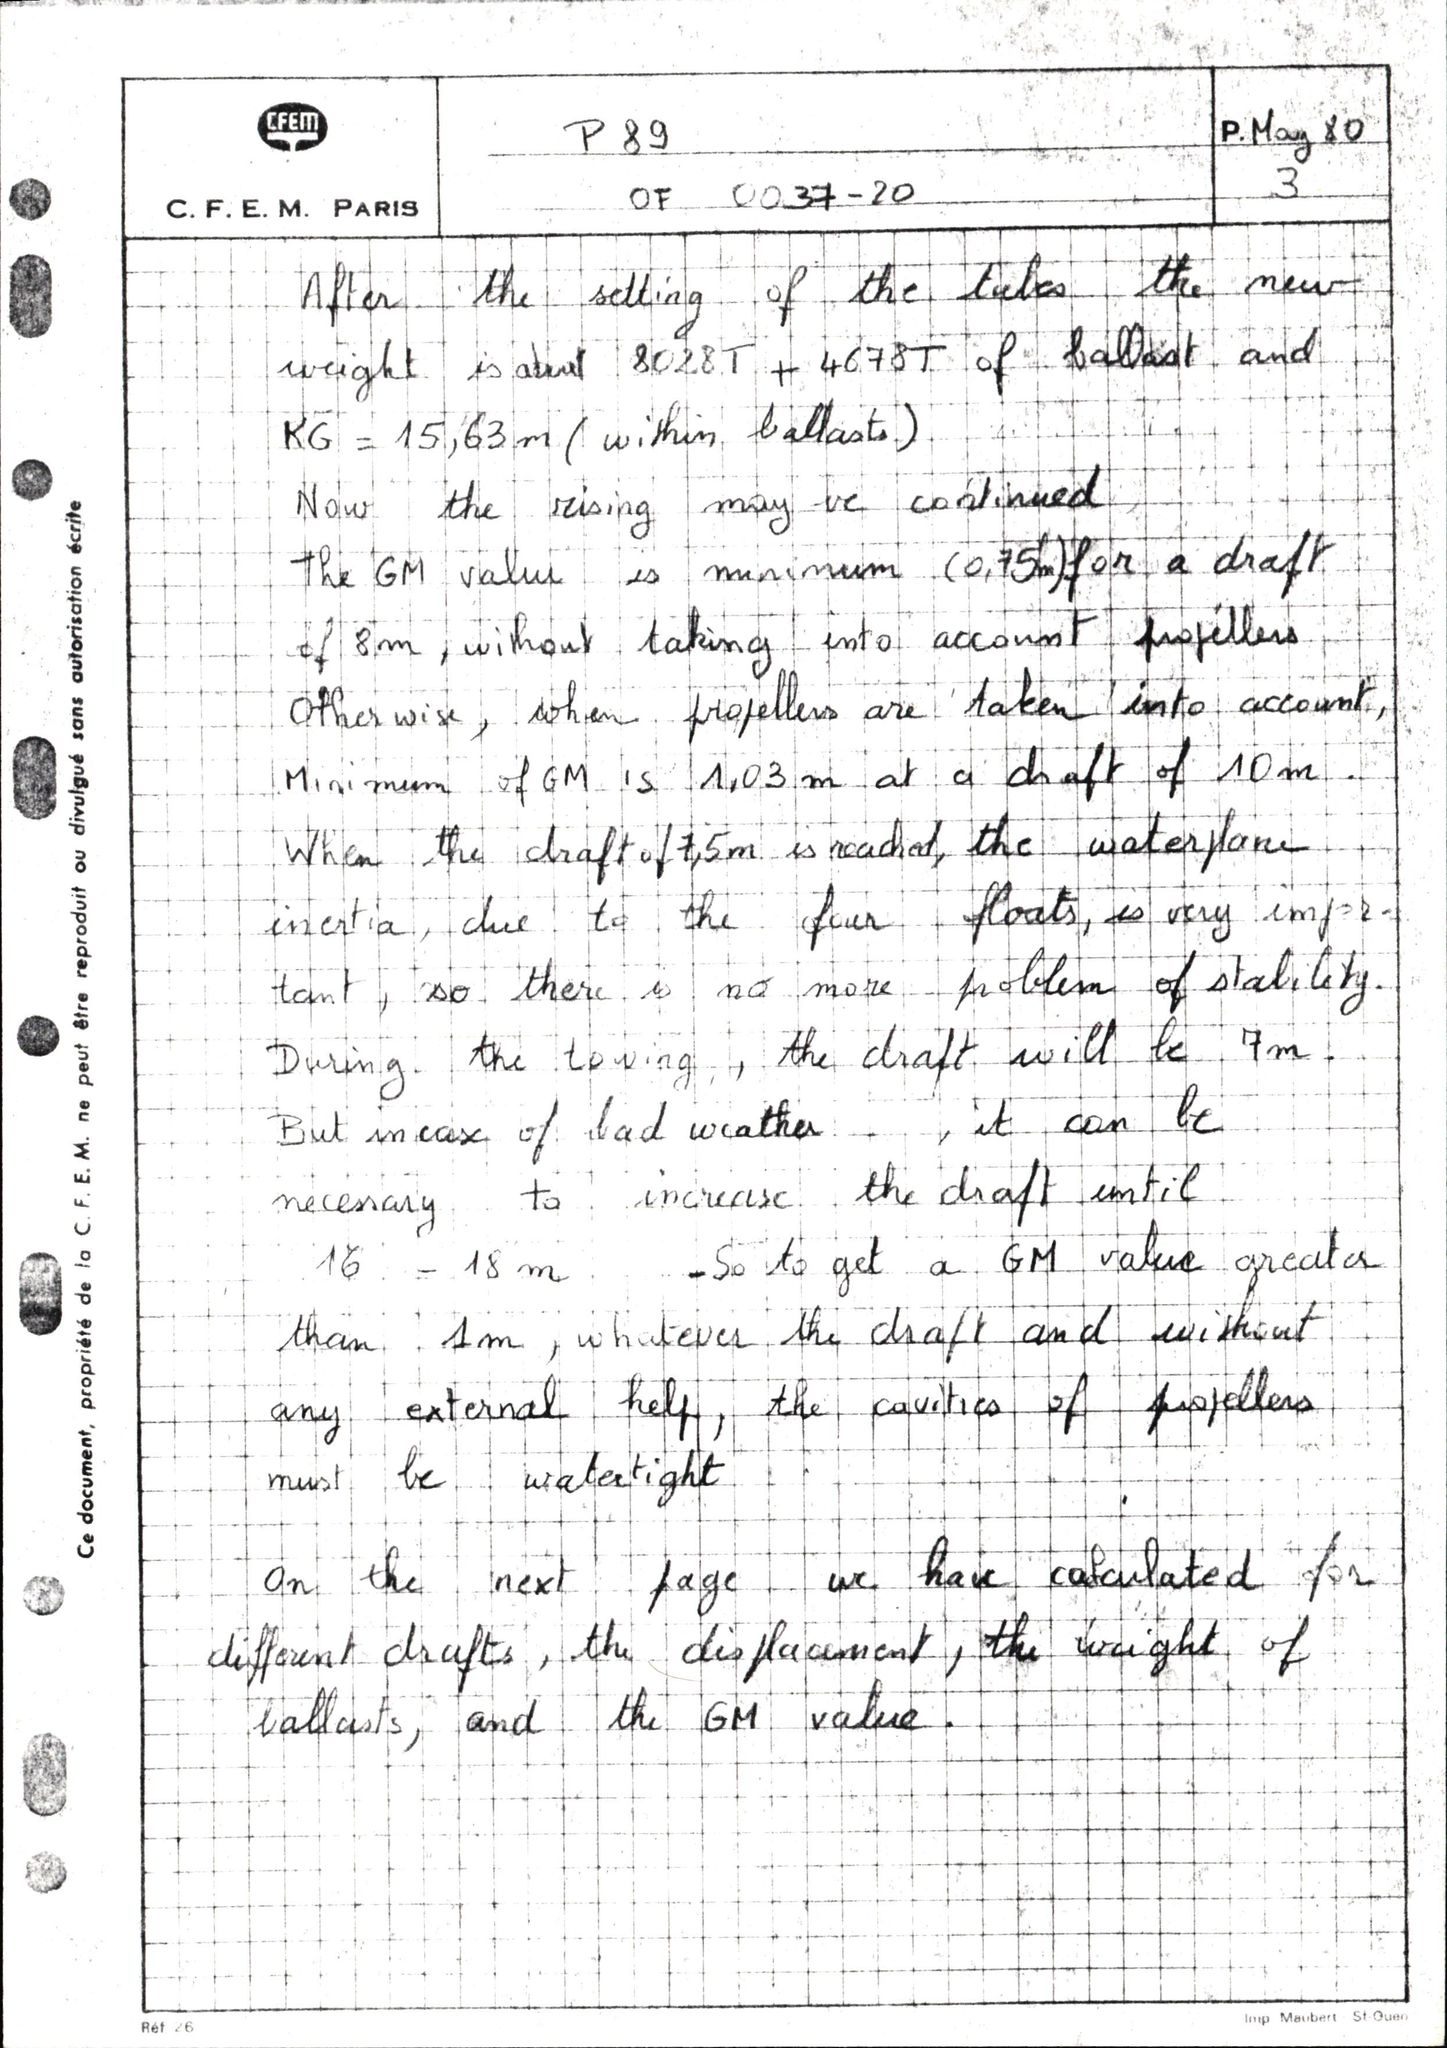 CFEM
C. F. E. M. PARIS
P 89
OF 0037-20
P. May 80
3
After the setting of the tubes the new
weight is about 8028T + 4678T of ballast and
KG = 15,63m (within ballasts)
Now the rising may be continued
The GM value is minimum (0,75m) for a draft
of 8m, without taking into account propellers
Otherwise, when propellers are taken into account,
Minimum of GM is 1,03m at a draft of 10m.
When the draft of 7,5m is reached, the waterplane
inertia, due to the four floats, is very impor-
tant, so there is no more problem of stability.
During the towing, the draft will be 7m.
But in case of bad weather, it can be
necessary to increase the draft until
16 - 18m. So to get a GM value greater
than 1m, whatever the draft and without
any external help, the cavities of propellers
must be watertight
On the next page we have calculated for
different drafts, the displacement, the weight of
ballasts, and the GM value.
Ce document, propriété de la C. F. E. M. ne peut être reproduit ou divulgué sans autorisation écrite
Réf 26
Imp Maubert St-Ouen